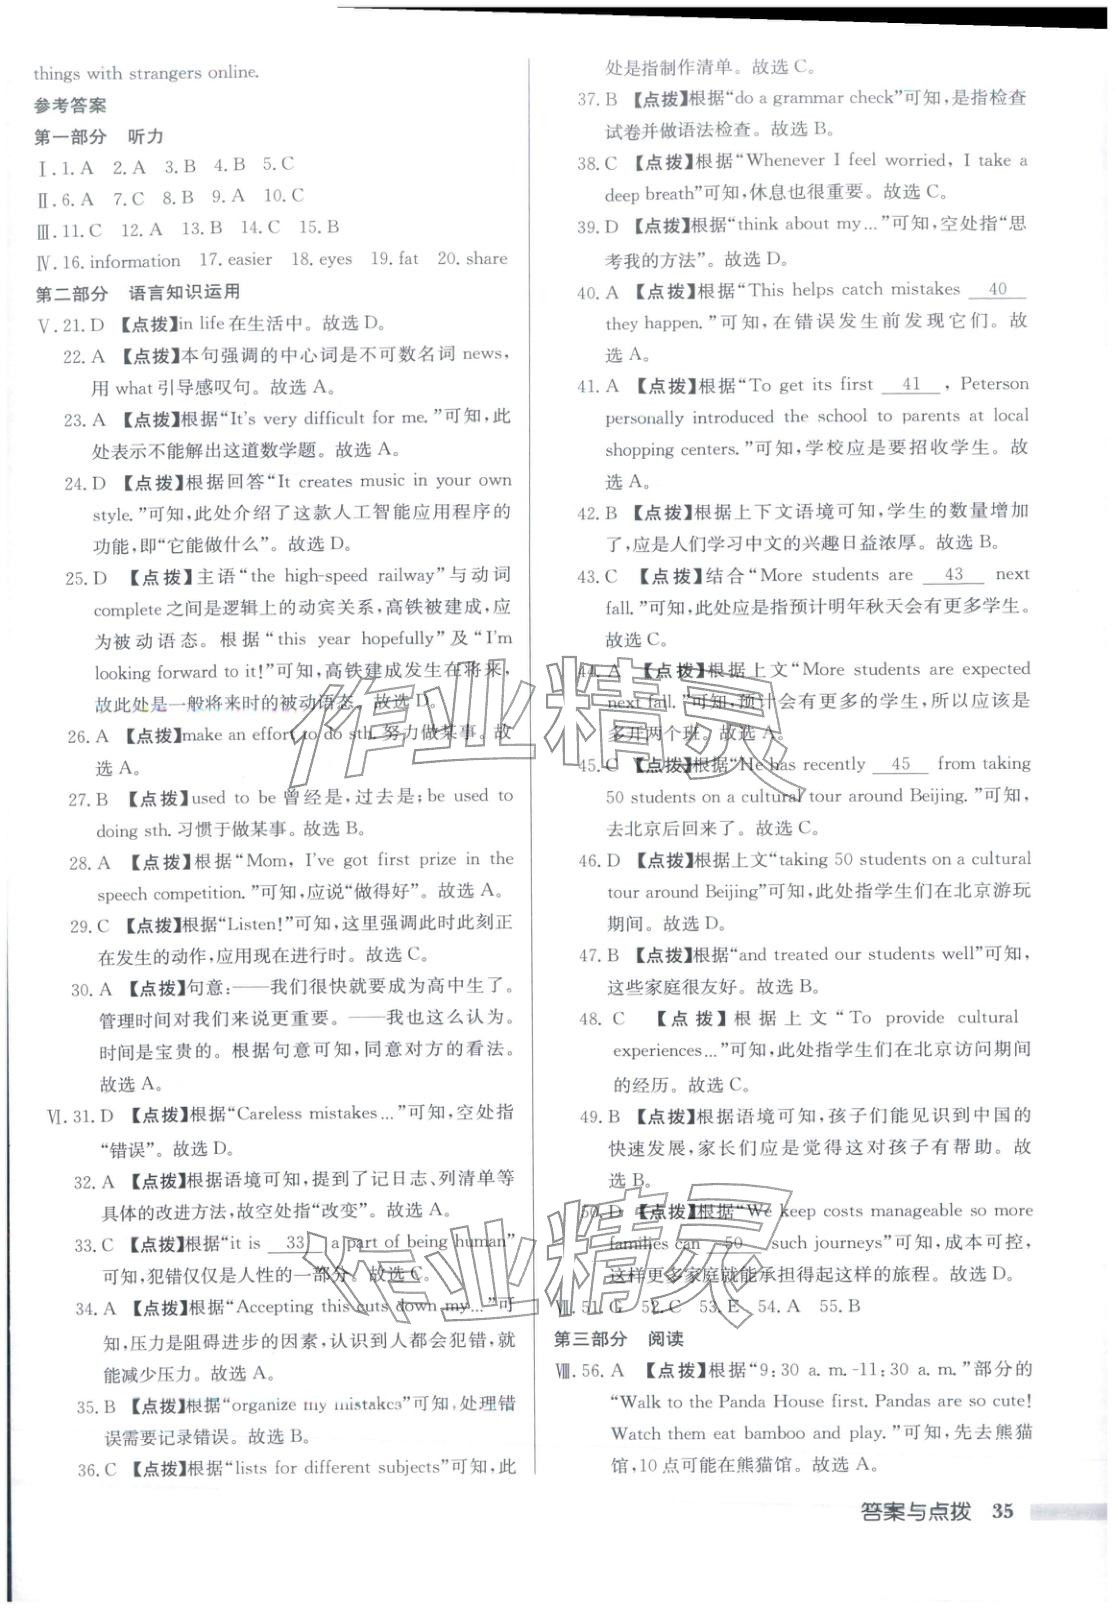 things with strangers online.
参考答案
第一部分　听力
Ⅰ. 1. A　2. A　3. B　4. B　5. C
Ⅱ. 6. A　7. C　8. B　9. A　10. C
Ⅲ. 11. C　12. A　13. B　14. C　15. B
Ⅳ. 16. information　17. easier　18. eyes　19. fat　20. share
第二部分　语言知识运用
Ⅴ. 21. D 【点拨】in life 在生活中。故选 D。
22. A 【点拨】本句强调的中心词是不可数名词 news，
用 what 引导感叹句。故选 A。
23. A 【点拨】根据“It's very difficult for me.”可知，此
处表示不能解出这道数学题。故选 A。
24. D 【点拨】根据回答“It creates music in your own
style.”可知，此处介绍了这款人工智能应用程序的
功能，即“它能做什么”。故选 D。
25. D 【点拨】主语“the high-speed railway”与动词
complete 之间是逻辑上的动宾关系，高铁被建成，应
为被动语态。根据“this year hopefully”及“I'm
looking forward to it!”可知，高铁建成发生在将来，
故此处是一般将来时的被动语态。故选 D。
26. A 【点拨】make an effort to do sth. 努力做某事。故
选 A。
27. B 【点拨】used to be 曾经是，过去是；be used to
doing sth. 习惯于做某事。故选 B。
28. A 【点拨】根据“Mom, I've got first prize in the
speech competition.”可知，应说“做得好”。故选 A。
29. C 【点拨】根据“Listen!”可知，这里强调此时此刻正
在发生的动作，应用现在进行时。故选 C。
30. A 【点拨】句意：——我们很快就要成为高中生了。
管理时间对我们来说更重要。——我也这么认为。
时间是宝贵的。根据句意可知，同意对方的看法。
故选 A。
Ⅵ. 31. D 【点拨】根据“Careless mistakes...”可知，空处指
“错误”。故选 D。
32. A 【点拨】根据语境可知，提到了记日志、列清单等
具体的改进方法，故空处指“改变”。故选 A。
33. C 【点拨】根据“it is 33 a part of being human”
可知，犯错仅仅是人性的一部分。故选 C。
34. A 【点拨】根据“Accepting this cuts down my...”可
知，压力是阻碍进步的因素，认识到人都会犯错，就
能减少压力。故选 A。
35. B 【点拨】根据“organize my mistakes”可知，处理错
误需要记录错误。故选 B。
36. C 【点拨】根据“lists for different subjects”可知，此
处是指制作清单。故选 C。
37. B 【点拨】根据“do a grammar check”可知，是指检查
试卷并做语法检查。故选 B。
38. C 【点拨】根据“Whenever I feel worried, I take a
deep breath”可知，休息也很重要。故选 C。
39. D 【点拨】根据“think about my...”可知，空处指“思
考我的方法”。故选 D。
40. A 【点拨】根据“This helps catch mistakes 40
they happen.”可知，在错误发生前发现它们。故
选 A。
41. A 【点拨】根据“To get its first 41 , Peterson
personally introduced the school to parents at local
shopping centers.”可知，学校应是要招收学生。故
选 A。
42. B 【点拨】根据上下文语境可知，学生的数量增加
了，应是人们学习中文的兴趣日益浓厚。故选 B。
43. C 【点拨】结合“More students are 43 next
fall.”可知，此处应是指预计明年秋天会有更多学生。
故选 C。
44. A 【点拨】根据上文“More students are expected
next fall.”可知，预计会有更多的学生，所以应该是
多开两个班。故选 A。
45. C 【点拨】根据“He has recently 45 from taking
50 students on a cultural tour around Beijing.”可知，
去北京后回来了。故选 C。
46. D 【点拨】根据上文“taking 50 students on a cultural
tour around Beijing”可知，此处指学生们在北京游玩
期间。故选 D。
47. B 【点拨】根据“and treated our students well”可知，
这些家庭很友好。故选 B。
48. C 【点拨】根据上文“To provide cultural
experiences...”可知，此处指学生们在北京访问期间
的经历。故选 C。
49. B 【点拨】根据语境可知，孩子们能见识到中国的
快速发展，家长们应是觉得这对孩子有帮助。故
选 B。
50. D 【点拨】根据“We keep costs manageable so more
families can 50 such journeys”可知，成本可控，
这样更多家庭就能承担得起这样的旅程。故选 D。
Ⅶ. 51. G　52. C　53. E　54. A　55. B
第三部分　阅读
Ⅷ. 56. A 【点拨】根据“9:30 a. m.-11:30 a. m.”部分的
“Walk to the Panda House first. Pandas are so cute!
Watch them eat bamboo and play.”可知，先去熊猫
馆，10 点可能在熊猫馆。故选 A。
答案与点拨　35
作业精灵
作业精灵